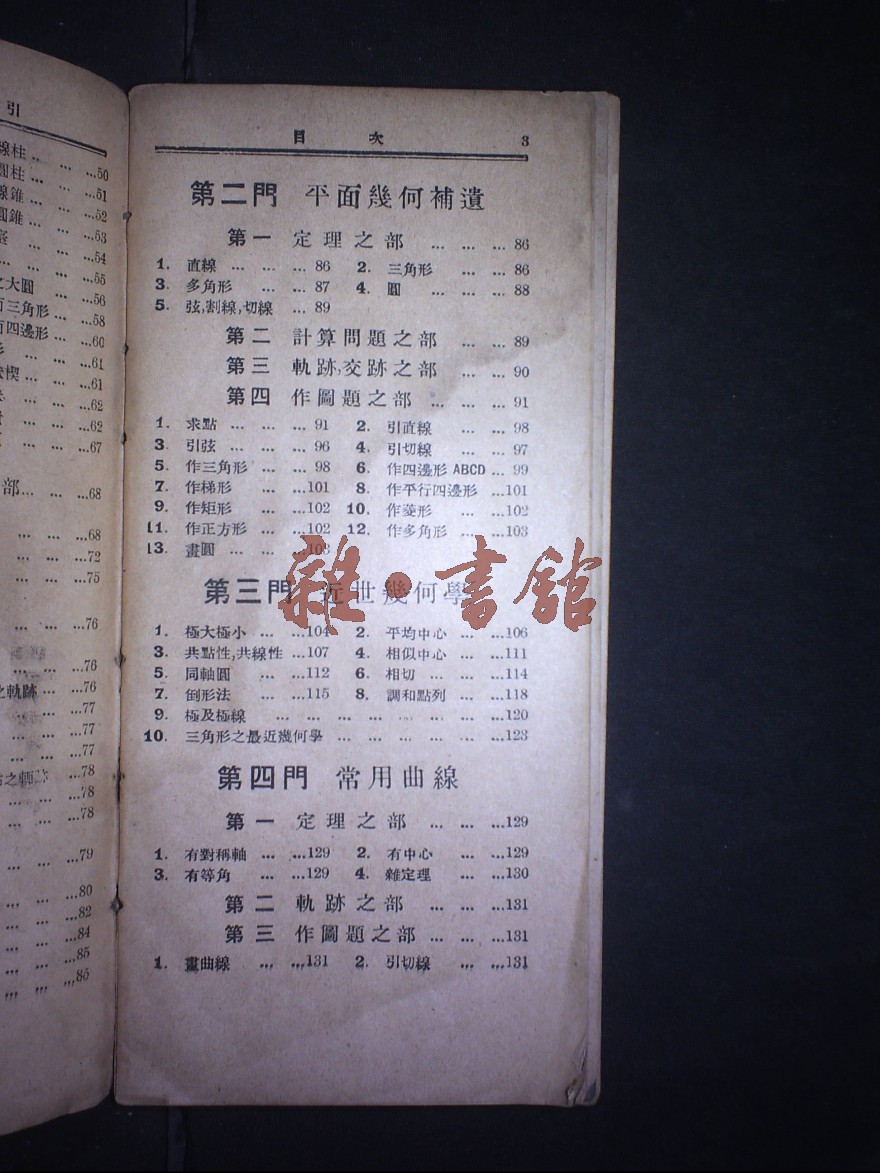 引
線柱 … … …50
圓柱 … … …51
線錐 … … …52
圓錐 … … …53
… … …54
… … … …55
之大圓 … … …56
面三角形 … …58
面四邊形 … …60
形 … … …61
… … …61
… … …62
… … …62
… … …67
部 … … …68
… … …68
… … …72
… … …75
… … …76
… … …76
之軌跡 … …76
… … …77
… … …77
… … …77
… …78
… … …78
… … …78
… … …79
… … …80
… … …82
… … …84
… … …85
… … …85
目 次 3
第二門 平面幾何補遺
第一 定理之部 … … … 86
1. 直線 … … … 86 2. 三角形 … … 86
3. 多角形 … … 87 4. 圓 … … … 88
5. 弦,割線,切線 … 89
第二 計算問題之部 … … 89
第三 軌跡,交跡之部 … … 90
第四 作圖題之部 … … … 91
1. 求點 … … … 91 2. 引直線 … … 98
3. 引弦 … … … 96 4. 引切線 … … 97
5. 作三角形 … … 98 6. 作四邊形 ABCD … 99
7. 作梯形 … …101 8. 作平行四邊形 …101
9. 作矩形 … …102 10. 作菱形 … …102
11. 作正方形 … …102 12. 作多角形 … …103
13. 畫圓 … … …103
雜·書館
第三門 近世幾何學
1. 極大極小 … …104 2. 平均中心 … …106
3. 共點性,共線性 …107 4. 相似中心 … …111
5. 同軸圓 … …112 6. 相切 … … …114
7. 倒形法 … …115 8. 調和點列 … …118
9. 極及極線 … … … … … … … …120
10. 三角形之最近幾何學 … … … … … …123
第四門 常用曲線
第一 定理之部 … … …129
1. 有對稱軸 … …129 2. 有中心 … …129
3. 有等角 … …129 4. 雜定理 … …130
第二 軌跡之部 … … …131
第三 作圖題之部 … … …131
1. 畫曲線 … …131 2. 引切線 … …131